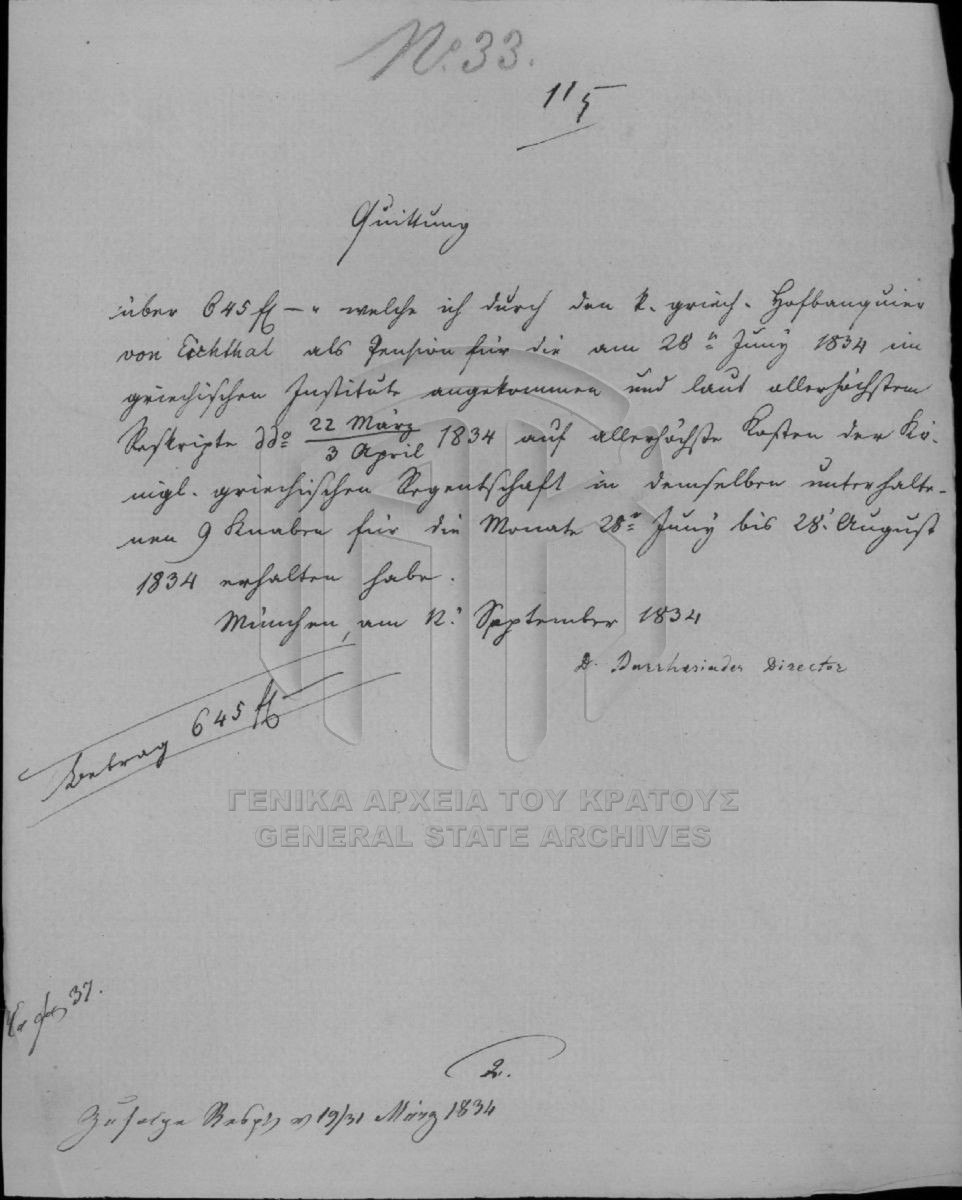 No. 33.
11/5
Quittung
über 645 fl – " welche ich durch den k. griech. Hofbanquier
von Eichthal als Pension für die am 28n Juny 1834 im
griechischen Institute angekommen und laut allerhöchstem
Reskripte ddo 22 März / 3 April 1834 auf allerhöchste Kosten der Kö-
nigl. griechischen Regentschaft in demselben unterhalte-
nen 9 Knaben für die Monate 28n Juny bis 28. August
1834 erhalten habe.
München, am 12. September 1834
D. Director
Betrag 645 fl –
37.
2.
Zufolge Respts v 19/31 März 1834
ΓΕΝΙΚΑ ΑΡΧΕΙΑ ΤΟΥ ΚΡΑΤΟΥΣ
GENERAL STATE ARCHIVES